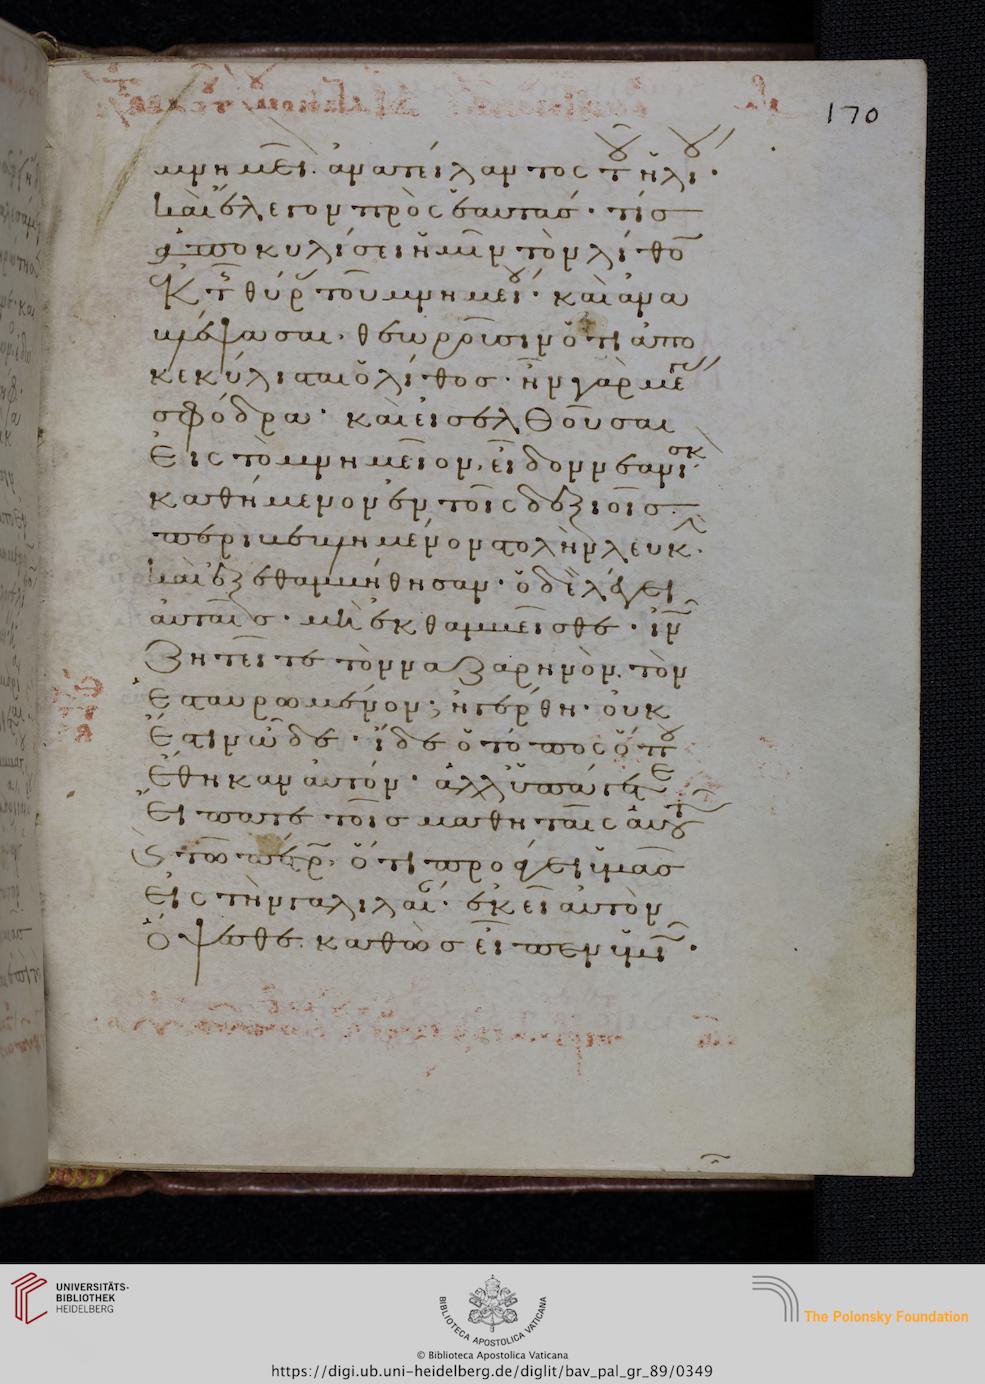 170
μνημεῖ· ἀνατείλαντος τοῦ ἡλί·
καὶ ἔλεγον πρὸς ἑαυτάς· τίς
ἀποκυλίσει ἡμῖν τὸν λίθο
ἐκ τῆς θύρ τοῦ μνημείου· καὶ ἀνα
βλέψασαι· θεωροῦσιν ὅτι ἀπο
κεκύλισται ὁ λίθος· ἦν γὰρ μέγ
σφόδρα· καὶ εἰσελθοῦσαι
Εἰς τὸ μνημεῖον, εἶδον νεανίσκ
καθήμενον ἐν τοῖς δεξιοῖς
περιβεβλημένον στολὴν λευκ·
καὶ ἐξεθαμβήθησαν· ὁ δὲ λέγει
αὐταῖς· μὴ ἐκθαμβεῖσθε· ἰν
Ζητεῖτε τὸν ναζαρηνὸν τὸν
Ἐσταυρωμένον; ἠγέρθη· οὐκ
Ἔστιν ὧδε· ἴδε ὁ τόπος ὅπου
Ἔθηκαν αὐτόν· ἀλλ' ὑπάγετε
Εἴπατε τοῖς μαθηταῖς αὐτοῦ
ϛ τῷ πέτρ· ὅτι προάγει ὑμᾶς
Εἰς τὴν γαλιλαί· ἐκεῖ αὐτὸν
Ὄψεσθε· καθὼς εἶπεν ὑμῖ·
UNIVERSITÄTS-
BIBLIOTHEK
HEIDELBERG
BIBLIOTECA APOSTOLICA VATICANA
The Polonsky Foundation
© Biblioteca Apostolica Vaticana
https://digi.ub.uni-heidelberg.de/diglit/bav_pal_gr_89/0349